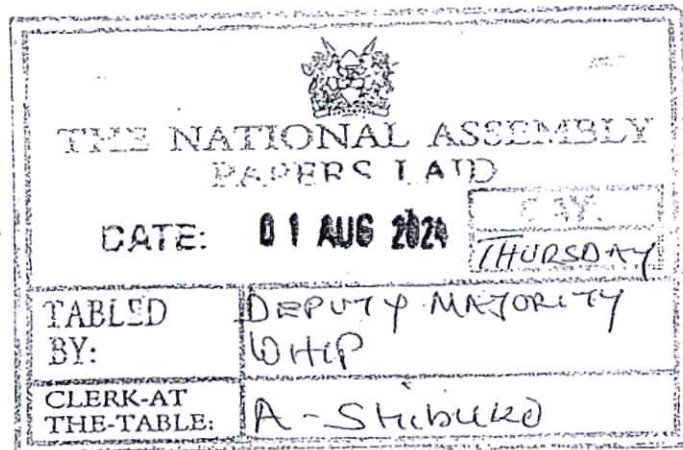 THE NATIONAL ASSEMBLY
PAPERS LAID
DATE: 01 AUG 2024 DAY.
THURSDAY
TABLED BY: DEPUTY MAJORITY WHIP
CLERK-AT THE-TABLE: A-Shibuko